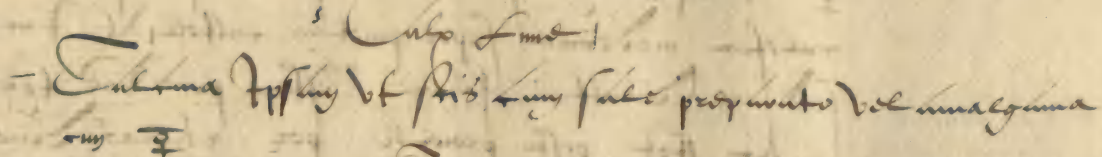 Calx Lune
Calcina Ipsum vt scis cum sale preparato vel amalgama
cum ☿